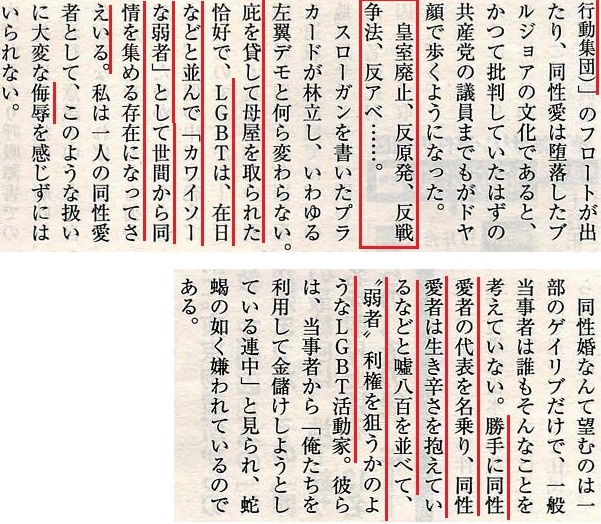 行動集団）」のフロートが出
たり、同性愛は堕落したブ
ルジョアの文化であると、
かつて批判していたはずの
共産党の議員までもがドヤ
顔で歩くようになった。
　皇室廃止、反原発、反戦
争法、反アベ……。
　スローガンを書いたプラ
カードが林立し、いわゆる
左翼デモと何ら変わらない。
庇を貸して母屋を取られた
恰好で、ＬＧＢＴは、在日
などと並んで「カワイソー
な弱者」として世間から同
情を集める存在になってさ
えいる。私は一人の同性愛
者として、このような扱い
に大変な侮辱を感じずには
いられない。
　同性婚なんて望むのは一
部のゲイリブだけで、一般
当事者は誰もそんなことを
考えていない。勝手に同性
愛者の代表を名乗り、同性
愛者は生き辛さを抱えてい
るなどと嘘八百を並べて、
〝弱者〟利権を狙うかのよ
うなＬＧＢＴ活動家。彼ら
は、当事者から「俺たちを
利用して金儲けしようとし
ている連中」と見られ、蛇
蝎の如く嫌われているので
ある。